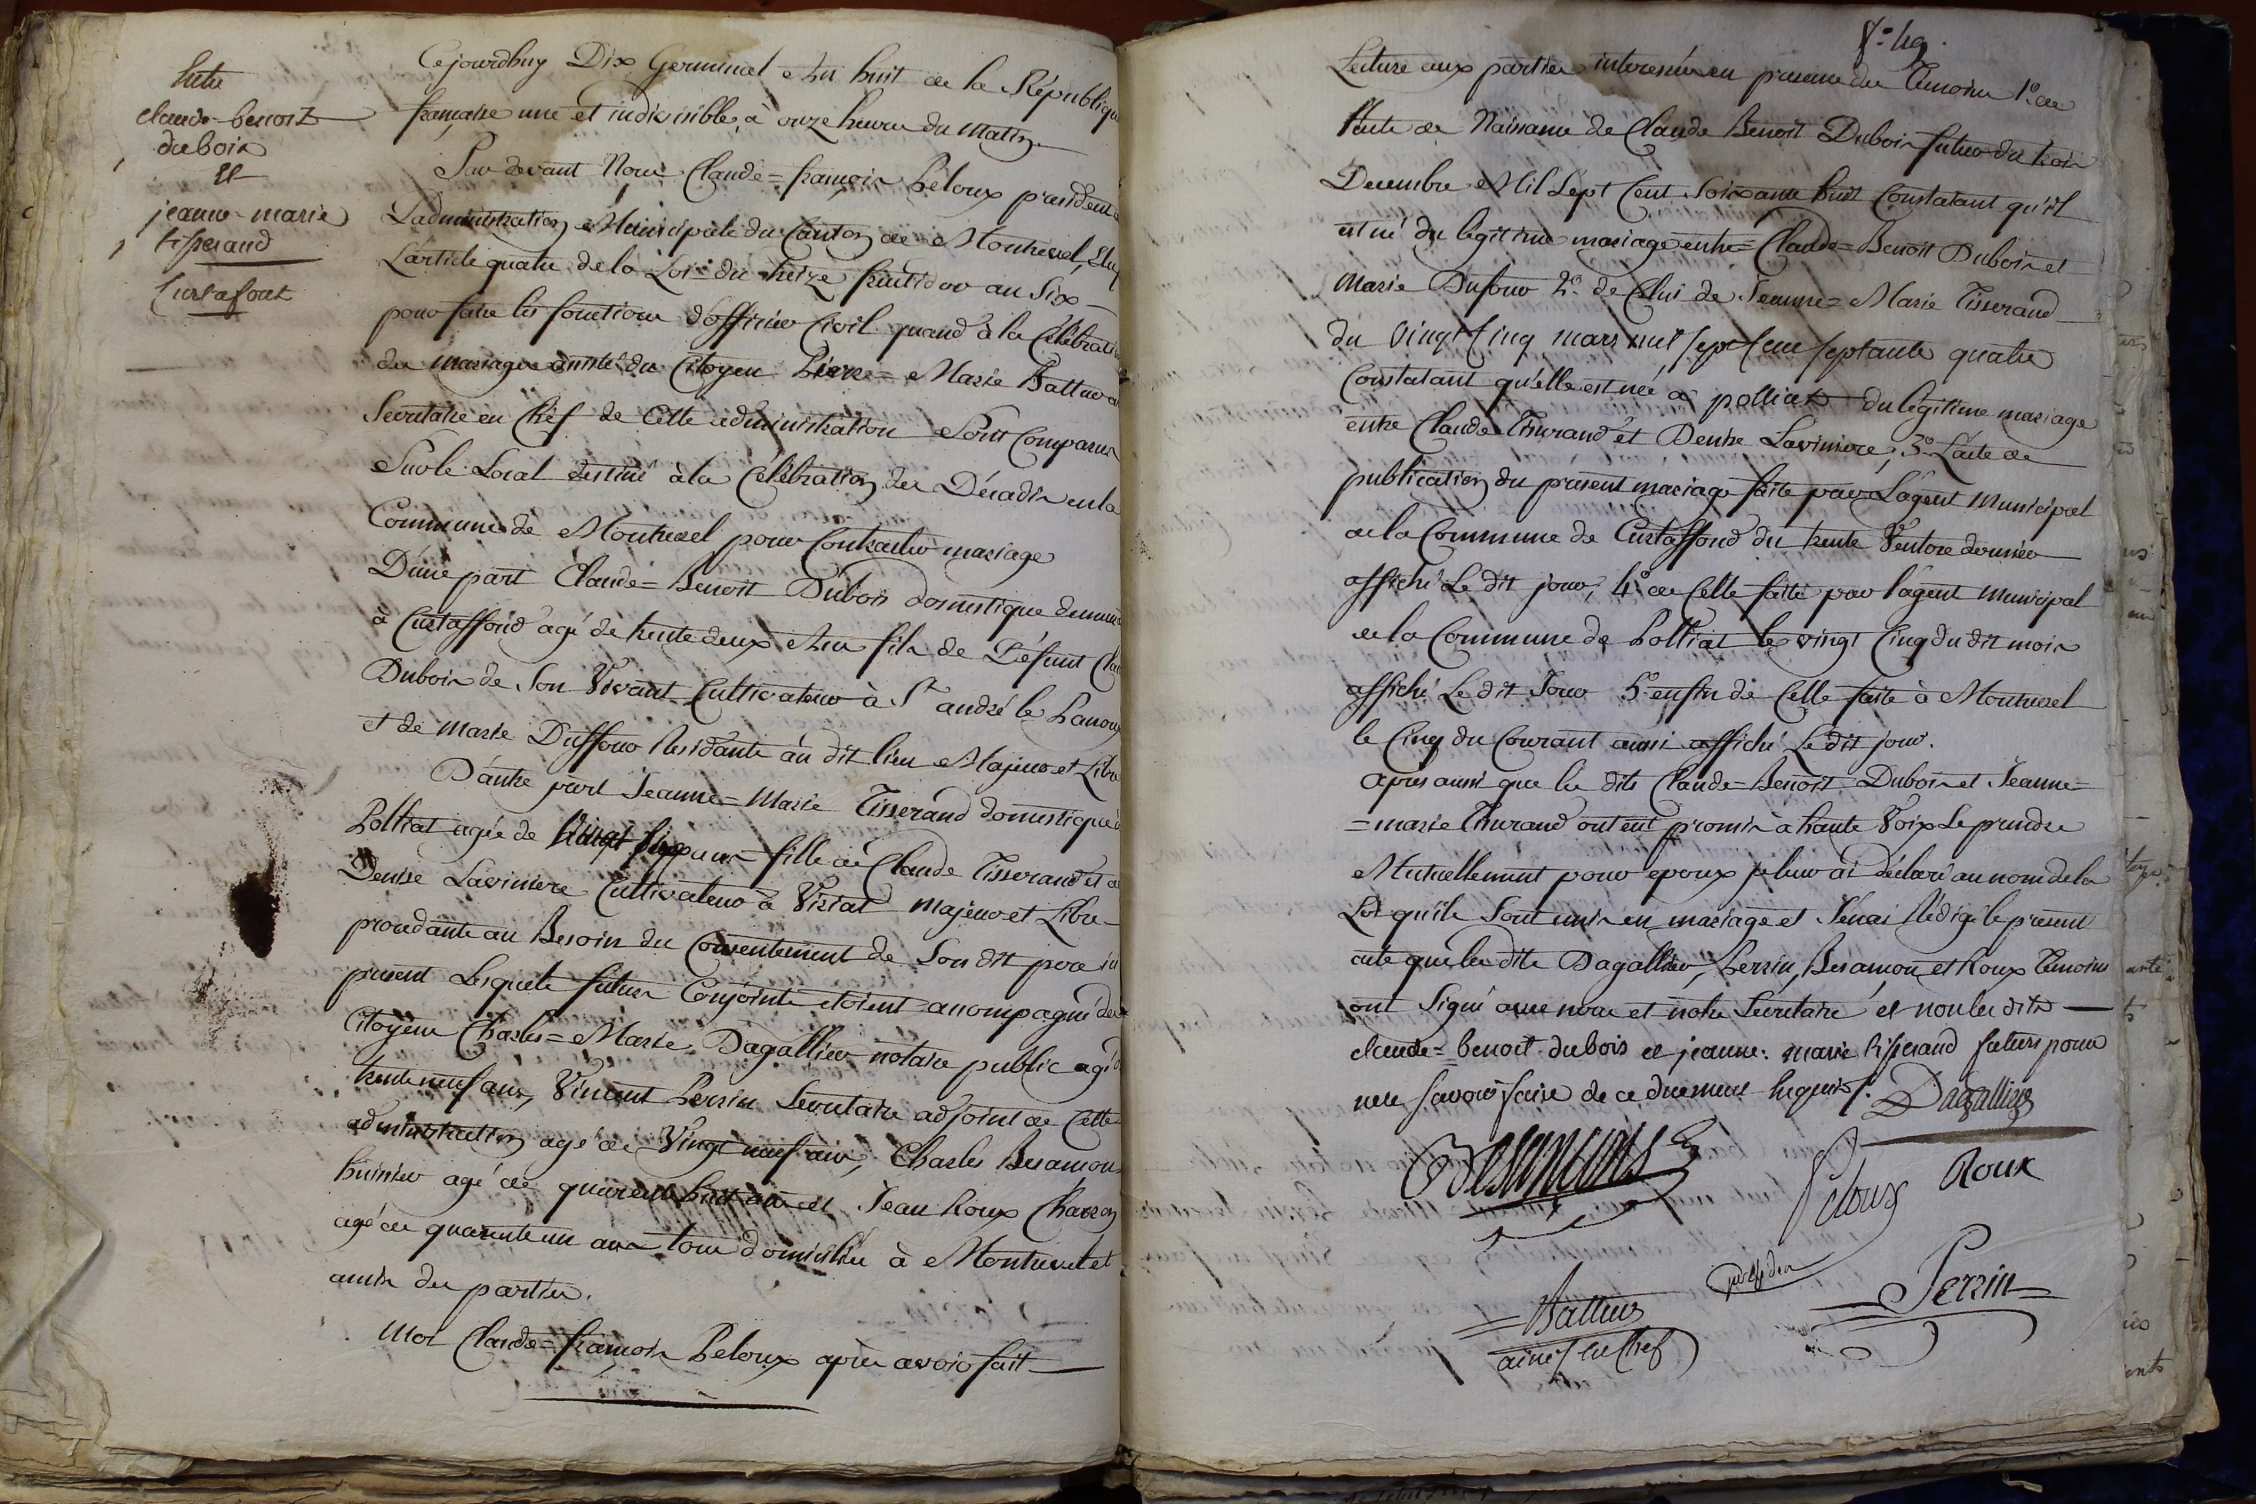 Entre
claude-benoit
dubois
et
jeanne-marie
tisserand
Curtafont
Cejourdhuy Dix Germinal An huit de la République
française une et indivisible, à onze heures du Matin
Par devant Nous Claude=françois Peloux president de
L'administration Municipale du Canton de Montrevel,
L'article quatre de la Loi du treize fructidor an Six
pour faire les fonctions d'officier Civil quand à la Célébration
des mariages assisté du Citoyen Pierre=Marie Battur
Secretaire en Chef de Cette administration Sont Comparus
Sur le Local destiné à la Célébration des Décadis en la
Commune de Montrevel pour Contracter mariage
D'une part Claude=Benoit Dubois domestique demeurant
à Curtaffond agé de trente deux Ans fils de Défunt Claude
Dubois de Son Vivant Cultivateur à St andré le Panoux
et de Marie Duffour Residante au dit lieu Majeur et Libre
D'autre part Jeanne=Marie Tisserand domestique à
Polliat agée de Vingt six ans fille de Claude Tisserand et de
Denise Laviniere Cultivateur à Viriat majeur et Libre
procedante au Besoin du Consentement de Son dit pere ici
present Lesquels futurs Conjoints etoient accompagnés des
Citoyens Charles=Marie Dagallier notaire public agé de
trente neuf ans, Vincent Perrin Secretaire adjoint de Cette
administration agé de Vingt neuf ans, Charles Besançon
huissier agé de quarente huit ans et Jean Roux Charron
agé de quarente un ans tous domiciliés à Montrevel et
amis des parties.
Moi Claude=françois Peloux après avoir fait
Lecture aux parties interessées en presence des Temoins 1° de
l'acte de Naissance de Claude Benoit Dubois futur du trois
Decembre Mil Sept Cent Soixante huit Constatant qu'il
est né du legitime mariage entre=Claude=Benoit Dubois et
Marie Dufour 2° de Celui de Jeanne=Marie Tisserand
du vingt Cinq mars mil sept Cent septante quatre
Constatant qu'elle est née à polliat du légitime mariage
entre Claude Tisserand et Denise Laviniere, 3° L'acte de
publication du present mariage faite par L'agent Municipal
de la Commune de Curtaffond du trente Ventose dernier
affiché Le dit jour, 4° de Celle faite par l'agent Municipal
de la Commune de Polliat le vingt Cinq du dit mois
affiché Le dit Jour 5° enfin de Celle faite à Montrevel
le Cinq du Courant aussi affiché Le dit jour.
après aussi que les dits Claude=Benoit Dubois et Jeanne=
=marie Tisserand ont eut promis à haute Voix Se prendre
Mutuellement pour epoux je leur ai déclaré au nom de la
Loi qu'ils Sont unis en mariage et J'en ai Rédigé le present
acte que les dits Dagallier, Perrin, Besançon et Roux Temoins
ont Signé avec nous et notre Secretaire et non les dits
claude=benoit dubois et jeanne: marie tisserand futurs pour
ne le savoir faire de ce duement requis.
Dagallier
Besancons
Peloux
Roux
presiden
Battur
ainé en Chef
Perrin